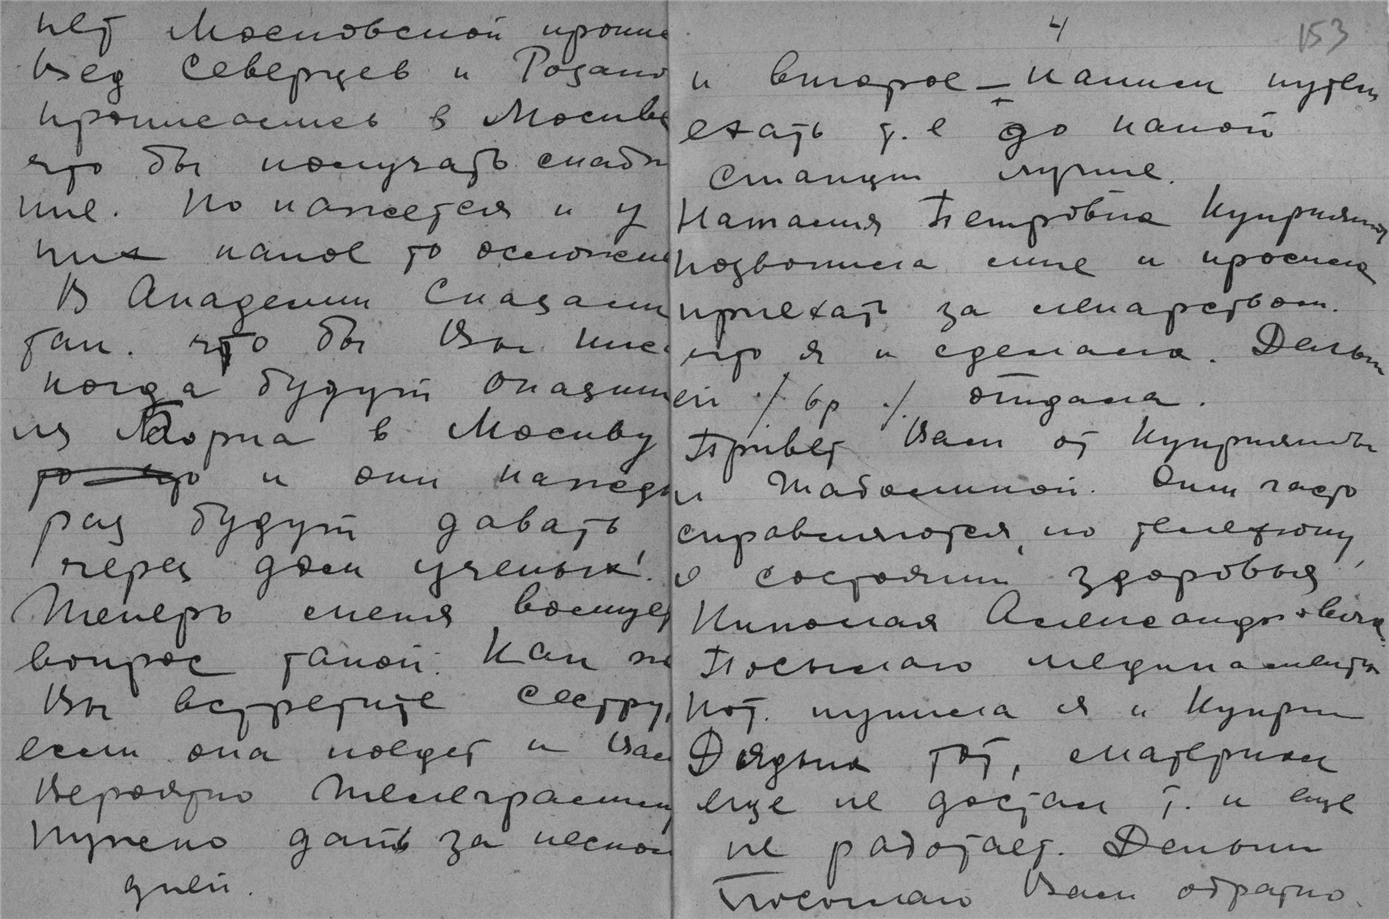 нет Московской пропис
Вед Северцев и Розано
прописались в Москве
что бы получать снабж
ние. Но кажется и у
них какое то осложнен
В Академии Сказали
так. что бы Вы
когда будут
из в Москву
и они кажды
раз будут давать
через дом ученых!
Теперь меня волнует
вопрос такой: Как же
Вы встретите сестру,
если она поедет к Вам
Вероятно телеграмму
нужно дать за несколь
дней.
4
153
и второе – каким путем
ехать т. е до какой
станции лучше.
Наталия Петровна Куприянов
позвонила мне и просила
приехать за лекарством.
что я и сделала. Деньги
ей /. вр ./ отдала.
Привет Вам от Куприяновы
и Таболиной. Они часто
справляются, по телефону,
о состоянии здоровья
Николая Александровича.
Посылаю медикаменты
кот. купила я и Купри
Дядька тот, материал
еще не достал т. к еще
не работает. Деньги
Посылаю Вам обратно.